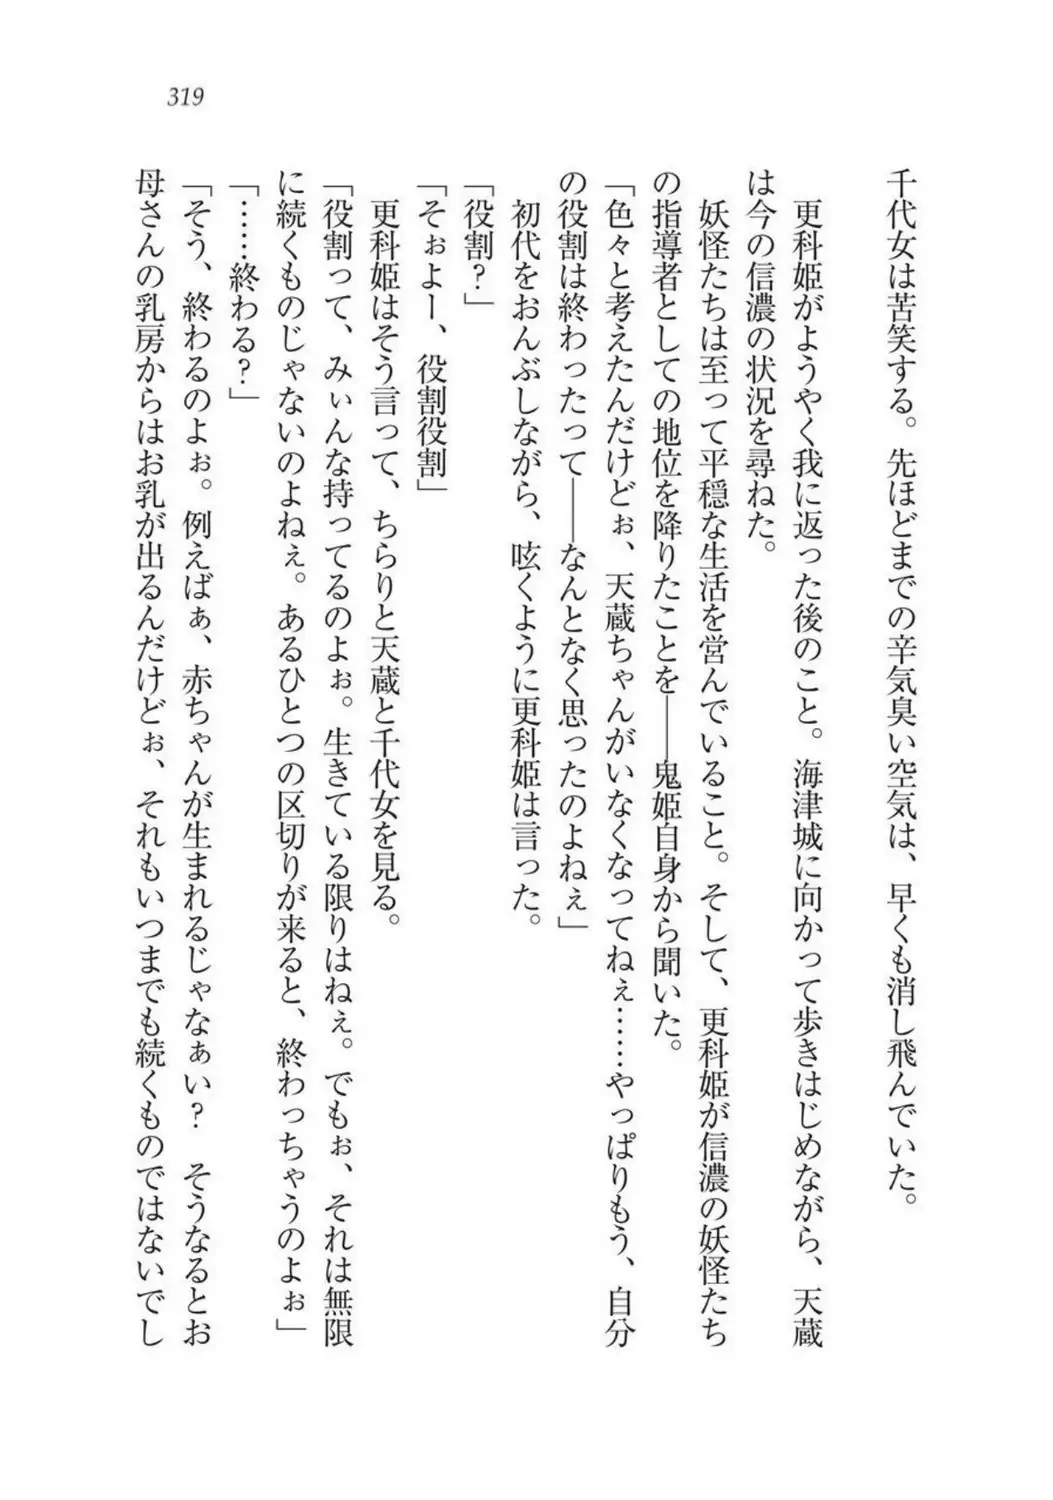 319
千代女は苦笑する。先ほどまでの辛気臭い空気は、早くも消し飛んでいた。
更科姫がようやく我に返った後のこと。海津城に向かって歩きはじめながら、天蔵
は今の信濃の状況を尋ねた。
妖怪たちは至って平穏な生活を営んでいること。そして、更科姫が信濃の妖怪たち
の指導者としての地位を降りたことを――鬼姫自身から聞いた。
「色々と考えたんだけどぉ、天蔵ちゃんがいなくなってねぇ……やっぱりもう、自分
の役割は終わったって――なんとなく思ったのよねぇ」
初代をおんぶしながら、呟くように更科姫は言った。
「役割？」
「そぉよー、役割役割」
更科姫はそう言って、ちらりと天蔵と千代女を見る。
「役割って、みぃんな持ってるのよぉ。生きている限りはねぇ。でもぉ、それは無限
に続くものじゃないのよねぇ。あるひとつの区切りが来ると、終わっちゃうのよぉ」
「……終わる？」
「そう、終わるのよぉ。例えばぁ、赤ちゃんが生まれるじゃなぁい？　そうなるとお
母さんの乳房からはお乳が出るんだけどぉ、それもいつまでも続くものではないでし